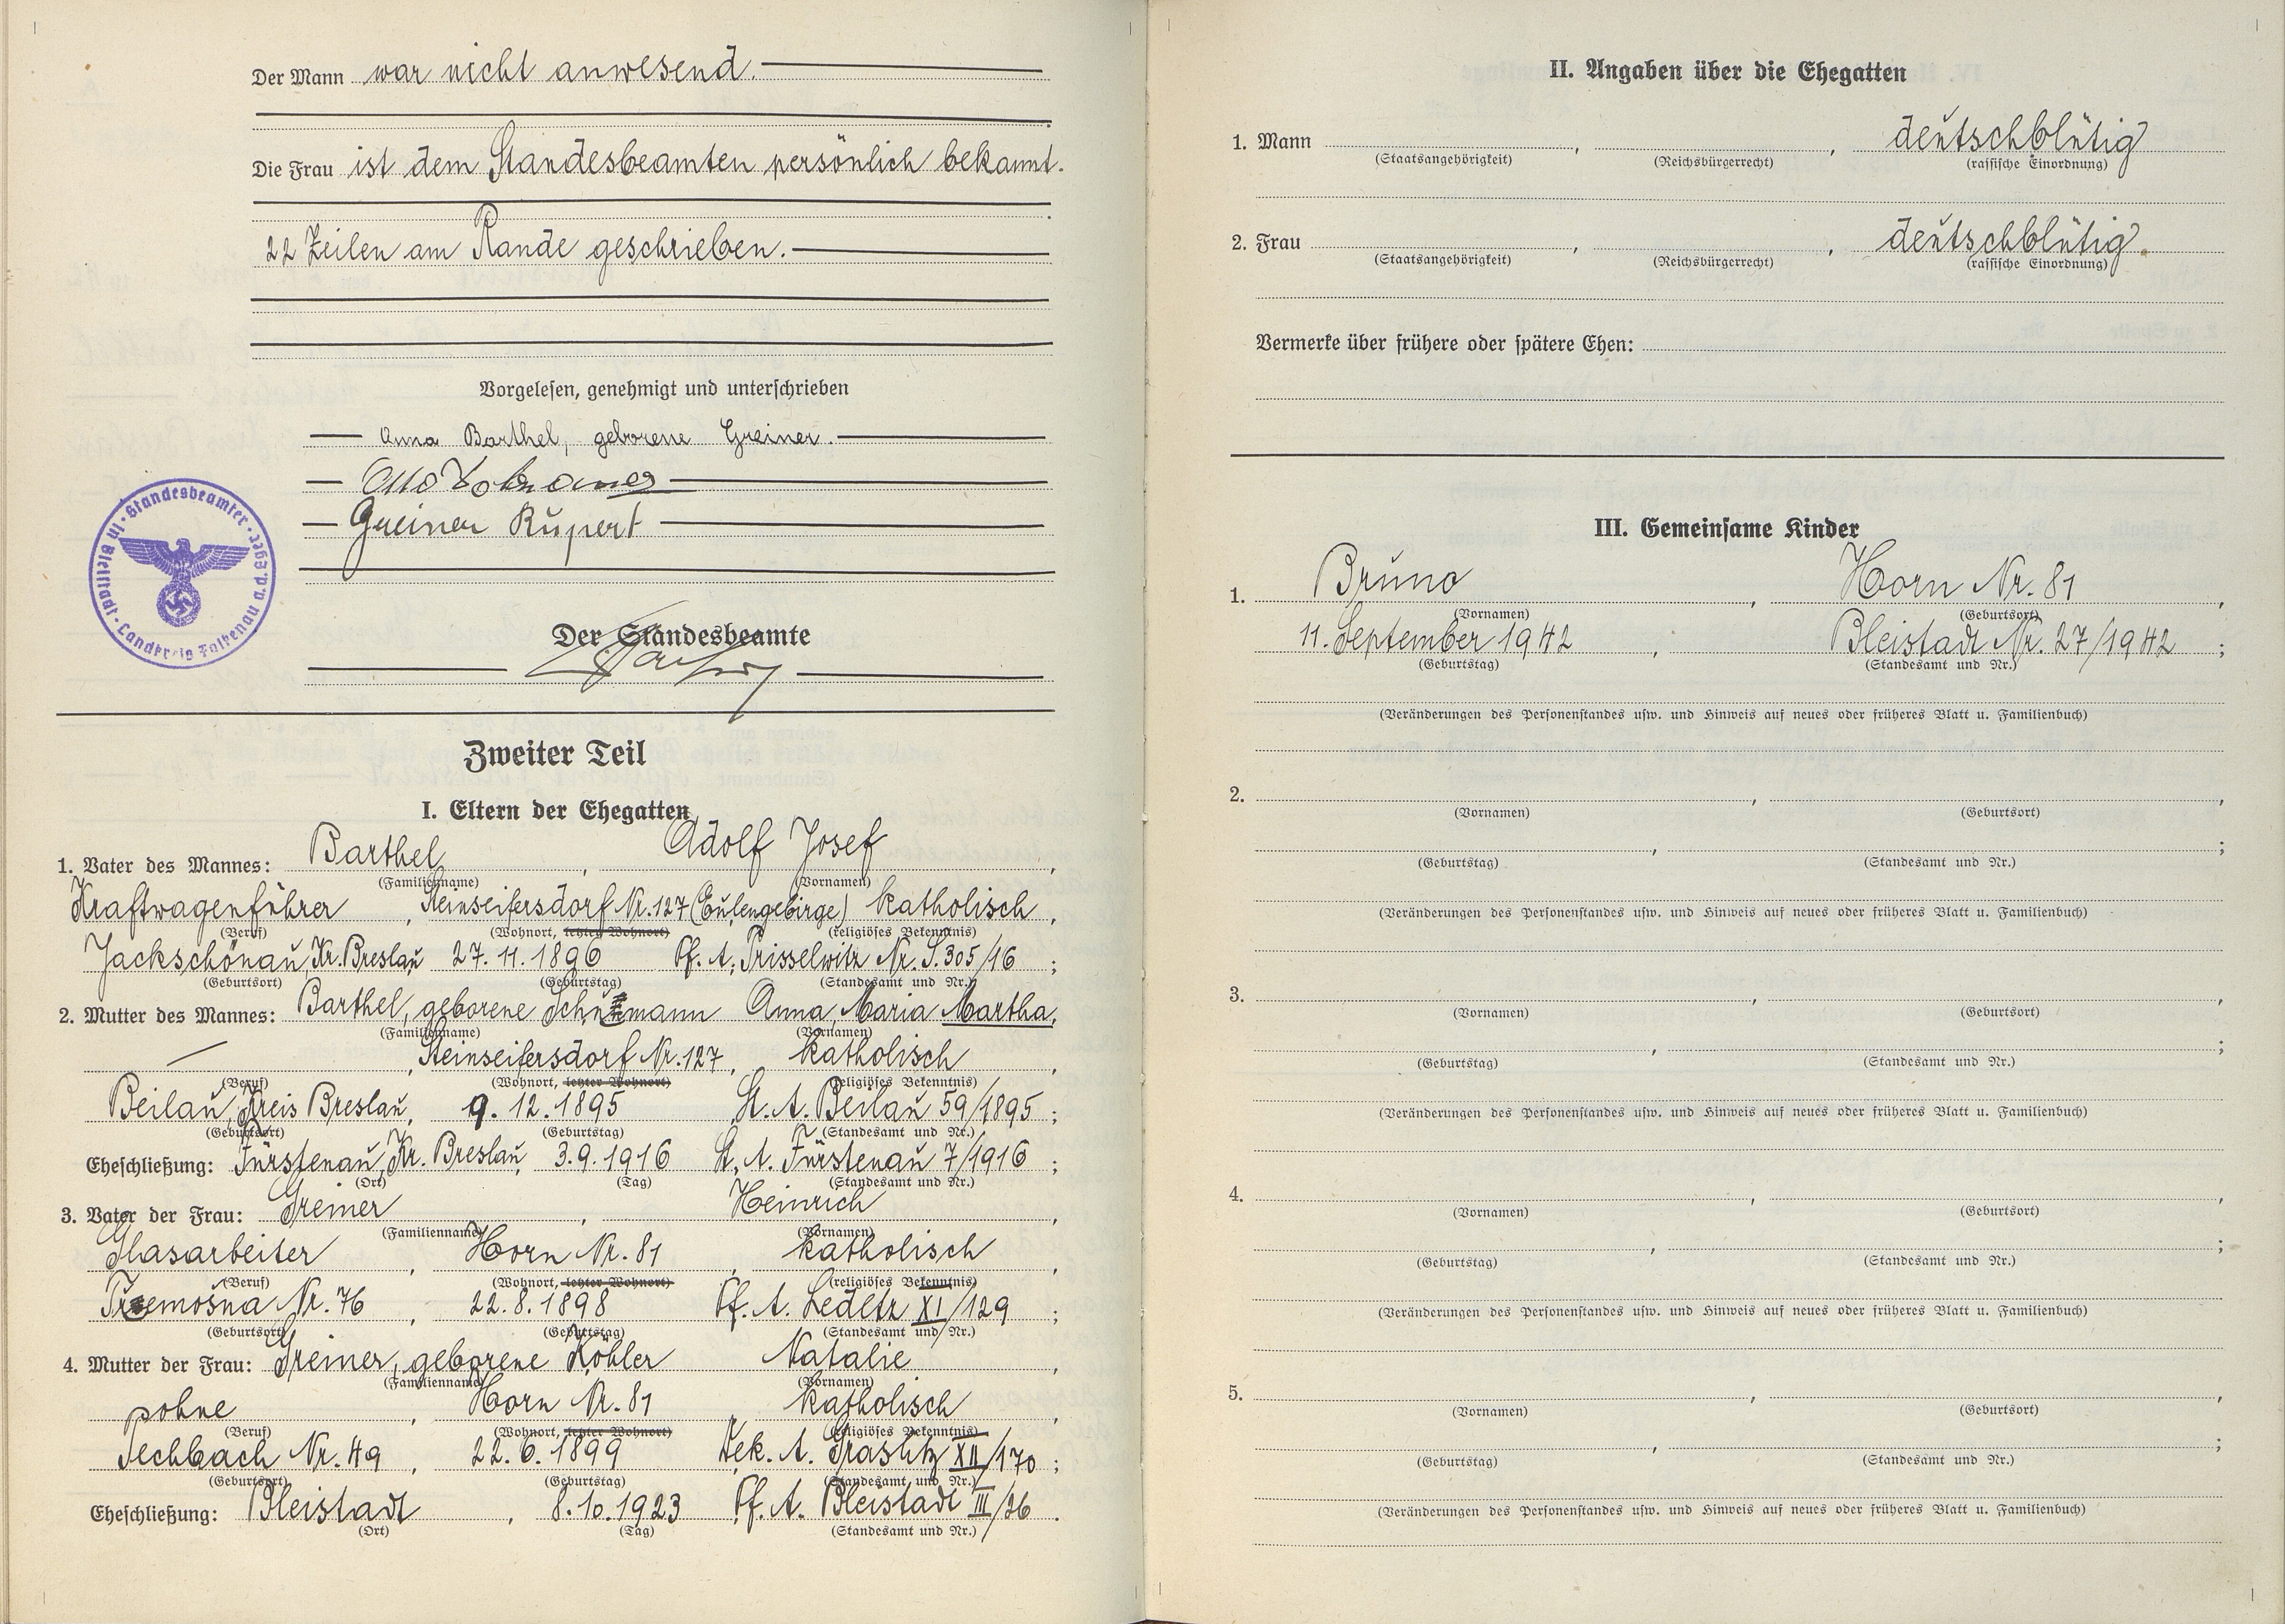 Der Mann war nicht anwesend.
Die Frau ist dem Standesbeamten persönlich bekannt.
22 Zeilen am Rande geschrieben.
Vorgelesen, genehmigt und unterschrieben
Anna Barthel, geborene Greiner.
Otto
Greiner Rupert
Standesbeamter in Bleistadt · Landkreis Falkenau a.d. Eger
Der Standesbeamte
Zweiter Teil
I. Eltern der Ehegatten
1. Vater des Mannes: Barthel, Adolf Josef,
(Familienname) (Vornamen)
Kraftwagenführer, Steinseifersdorf Nr. 127 (Eulengebirge) katholisch,
(Beruf) (Wohnort, letzter Wohnort) (religiöses Bekenntnis)
Jackschönau, Kr. Breslau 27. 11. 1896 Pf. A. Trisselwitz Nr. S. 305/16;
(Geburtsort) (Geburtstag) (Standesamt und Nr.)
2. Mutter des Mannes: Barthel, geborene Anna Maria Martha,
(Familienname) (Vornamen)
—, Steinseifersdorf Nr. 127, katholisch,
(Beruf) (Wohnort, letzter Wohnort) (religiöses Bekenntnis)
Beilau, Kreis Breslau, 9. 12. 1895 St. A. Beilau 59/1895;
(Geburtsort) (Geburtstag) (Standesamt und Nr.)
Eheschließung: Fürstenau, Kr. Breslau, 3. 9. 1916 St. A. Fürstenau 7/1916;
(Ort) (Tag) (Standesamt und Nr.)
3. Vater der Frau: Greiner, Heinrich,
(Familienname) (Vornamen)
Glasarbeiter, Horn Nr. 81, katholisch,
(Beruf) (Wohnort, letzter Wohnort) (religiöses Bekenntnis)
Třemošna Nr. 76, 22. 8. 1898 Pf. A. Ledetz XI/129;
(Geburtsort) (Geburtstag) (Standesamt und Nr.)
4. Mutter der Frau: Greiner, geborene Köhler Natalie,
(Familienname) (Vornamen)
ohne, Horn Nr. 81, katholisch,
(Beruf) (Wohnort, letzter Wohnort) (religiöses Bekenntnis)
Pechbach Nr. 49, 22. 6. 1899 Dek. A. Graslitz XII/170;
(Geburtsort) (Geburtstag) (Standesamt und Nr.)
Eheschließung: Bleistadt, 8. 10. 1923 Pf. A. Bleistadt III/26.
(Ort) (Tag) (Standesamt und Nr.)
II. Angaben über die Ehegatten
1. Mann , , deutschblütig
(Staatsangehörigkeit) (Reichsbürgerrecht) (rassische Einordnung)
2. Frau , , deutschblütig.
(Staatsangehörigkeit) (Reichsbürgerrecht) (rassische Einordnung)
Vermerke über frühere oder spätere Ehen:
III. Gemeinsame Kinder
1. Bruno, Horn Nr. 81,
(Vornamen) (Geburtsort)
11. September 1942, Bleistadt Nr. 27/1942;
(Geburtstag) (Standesamt und Nr.)
(Veränderungen des Personenstandes usw. und Hinweis auf neues oder früheres Blatt u. Familienbuch)
2. , ,
(Vornamen) (Geburtsort)
, ;
(Geburtstag) (Standesamt und Nr.)
(Veränderungen des Personenstandes usw. und Hinweis auf neues oder früheres Blatt u. Familienbuch)
3. , ,
(Vornamen) (Geburtsort)
, ;
(Geburtstag) (Standesamt und Nr.)
(Veränderungen des Personenstandes usw. und Hinweis auf neues oder früheres Blatt u. Familienbuch)
4. , ,
(Vornamen) (Geburtsort)
, ;
(Geburtstag) (Standesamt und Nr.)
(Veränderungen des Personenstandes usw. und Hinweis auf neues oder früheres Blatt u. Familienbuch)
5. , ,
(Vornamen) (Geburtsort)
, ;
(Geburtstag) (Standesamt und Nr.)
(Veränderungen des Personenstandes usw. und Hinweis auf neues oder früheres Blatt u. Familienbuch)